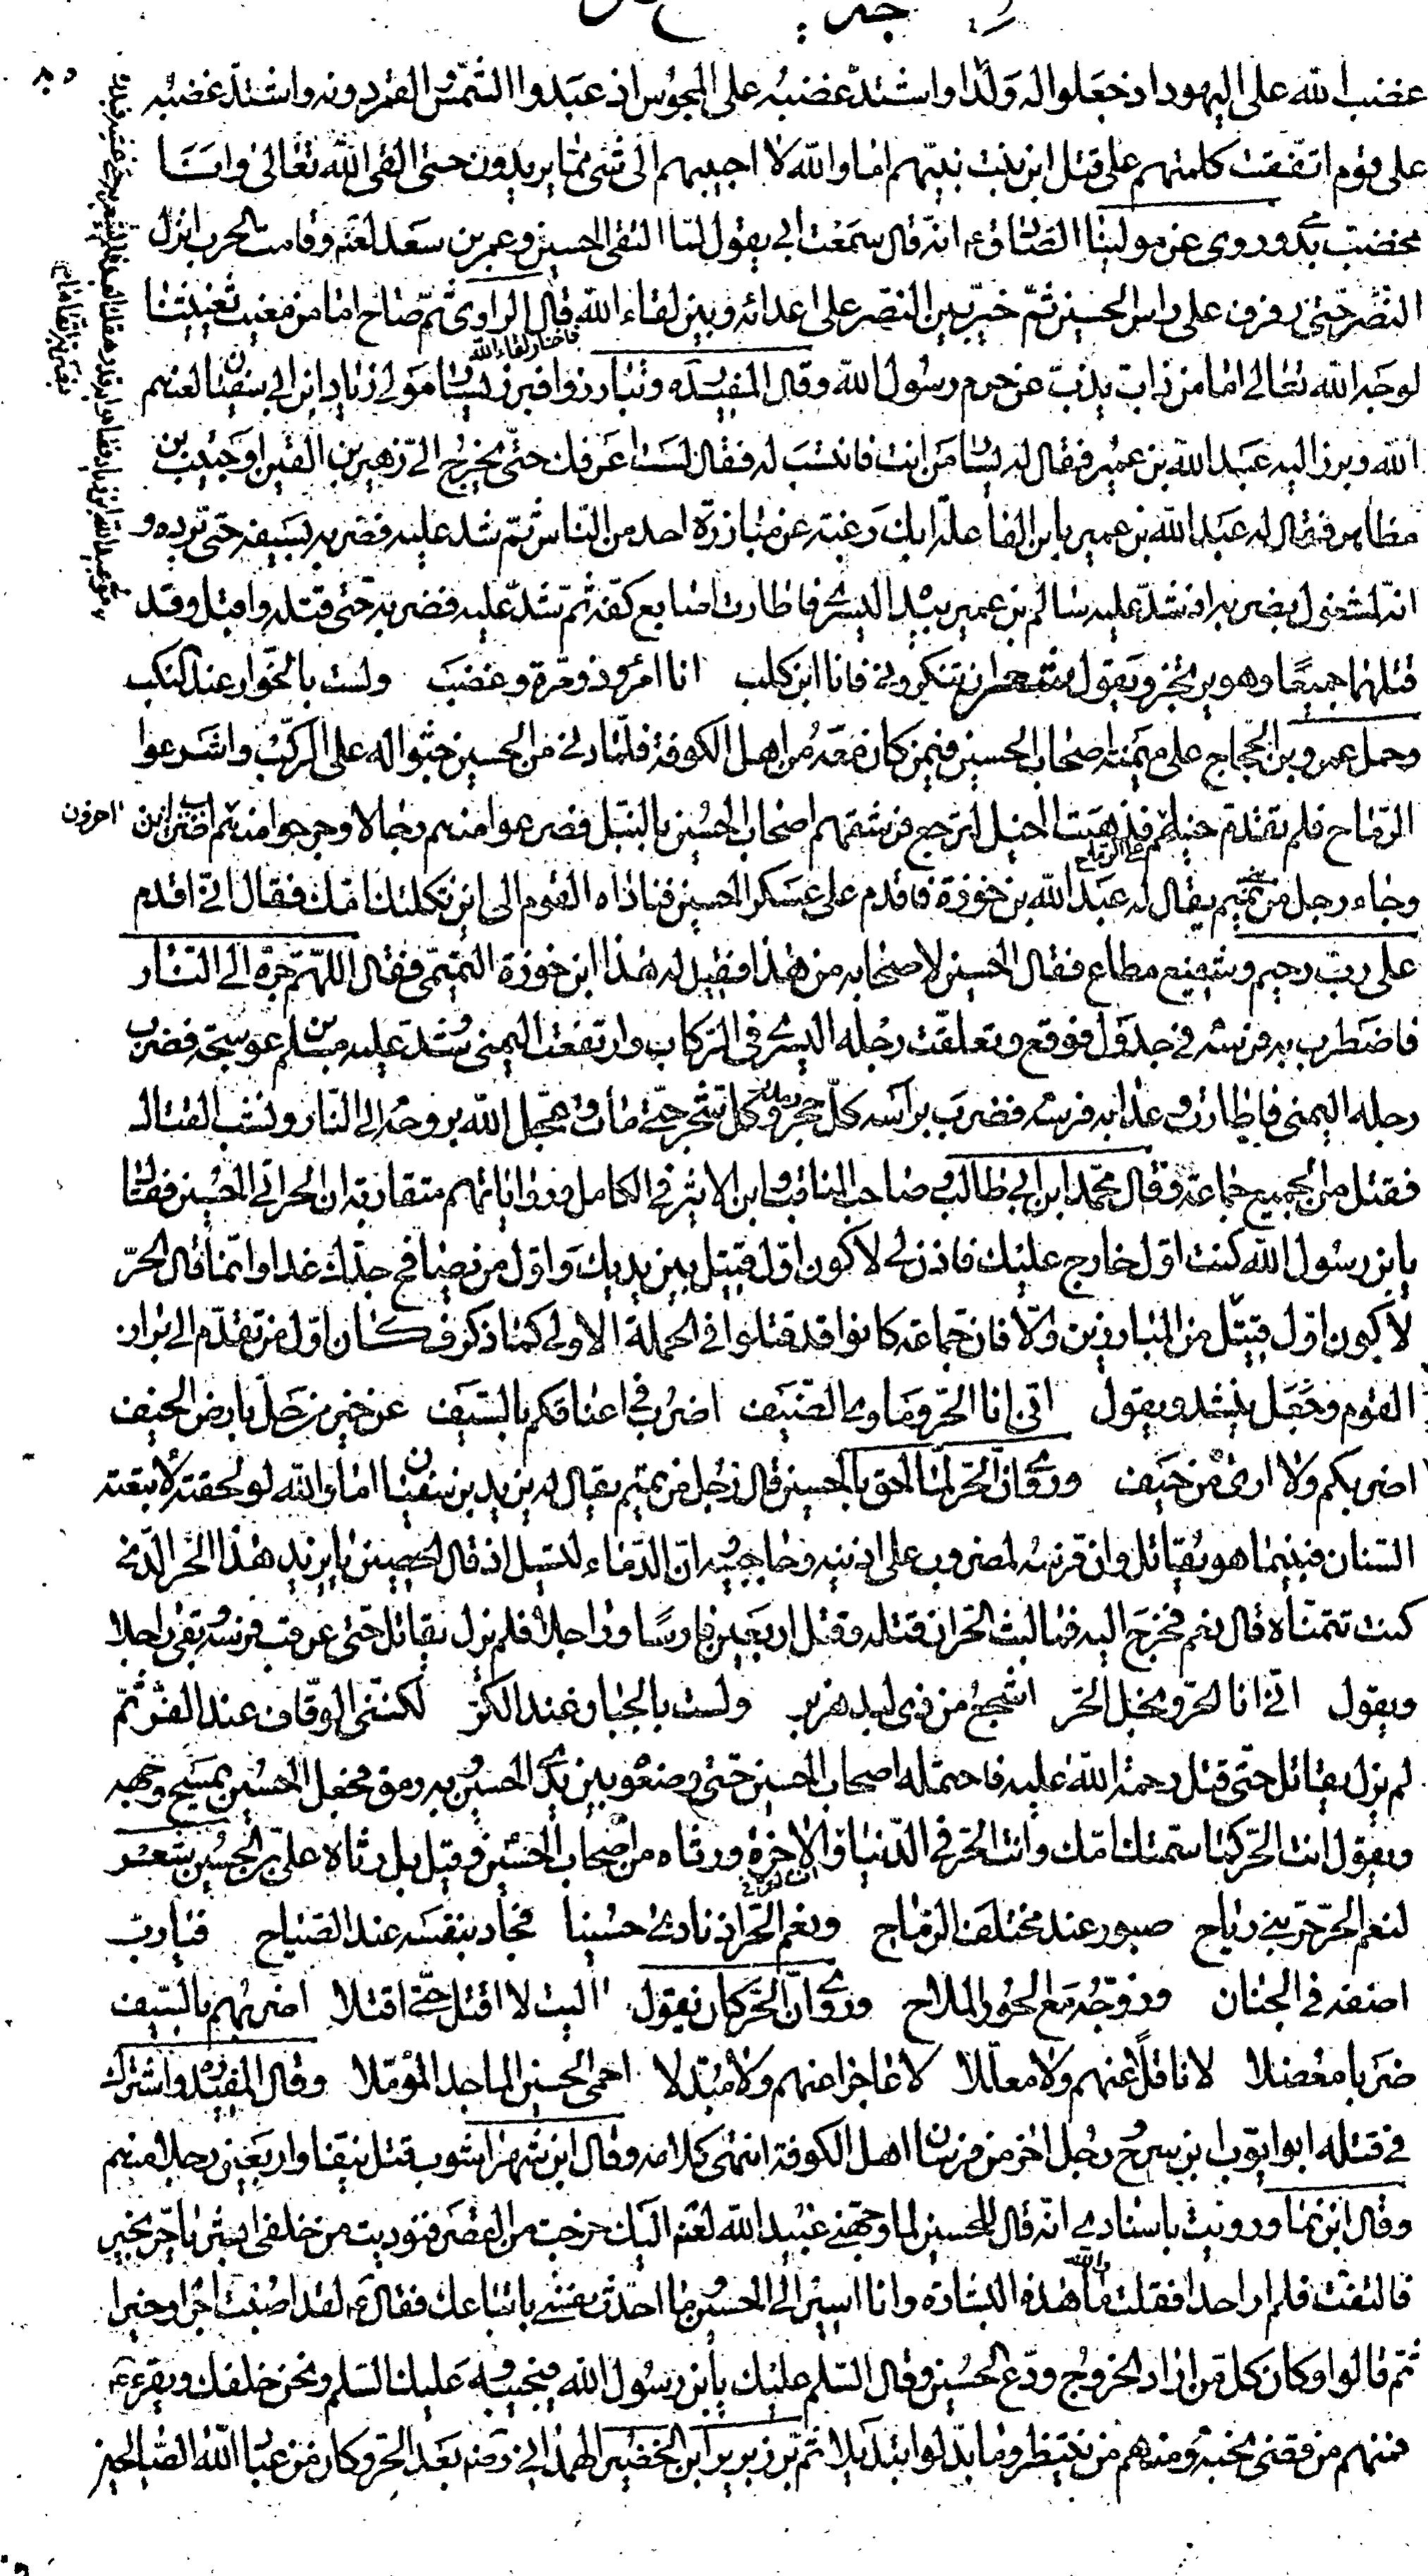 غضب الله على اليهود اذ جعلوا له ولدا واشتد غضبه على المجوس اذ عبدوا الشمس والقمر دونه واشتد غضبه
على قوم اتفقت كلمتهم على قتل ابن بنت نبيهم اما والله لا اجيبهم الى شئ مما يريدون حتى القى الله تعالى وانا
مخضب بدمي وروى عن مولينا الصادق ع انه قال سمعت ابي يقول لما التقى الحسين وعمر بن سعد لعنه وقامت الحرب انزل
النصر حتى رفرف على راس الحسين ثم خير بين النصر على اعدائه وبين لقاء الله قال الراوى ثم صاح اما من مغيث يغيثنا
فاختار لقاء الله
لوجه الله تعالى اما من ذاب يذب عن حرم رسول الله وقال المفيد ره وتبارزوا فبرز يسار مولى زياد ابن ابي سفين لعنهم
الله وبرز اليه عبد الله بن عمير فقال له يسار من انت فانتسب له فقال لست اعرفك حتى يخرج الى زهير بن القين او حبيب بن
مظاهر فقال له عبد الله بن عمير يا بن الفاعلة ابك رغبة عن مبارزة احد من الناس ثم شد عليه فضربه بسيفه حتى برده و
انه لمشغول بضربه اذ شد عليه سالم بن عمير بيده اليسرى فاطارت اصابع كفه ثم شد عليه فضربه حتى قتله واقبل وقد
قتلهما جميعا وهو يرتجز ويقول شعر ان تنكروني فانا ابن كلب انا امرؤ ذو مرة وغضب ولست بالخوار عند النكب
وحمل عمرو بن الحجاج على ميمنة اصحاب الحسين فيمن كان معه من اهل الكوفة فلما دنى من الحسين جثوا له على الركب واشرعوا
الرماح فلم تقدم خيلهم على الرماح فذهبت الخيل لترجع فرشقهم اصحاب الحسين بالنبل فصرعوا منهم رجالا وجرحوا منهم اخرين اخرون
وجاء رجل من تميم يقال له عبد الله بن حوزة فاقدم على عسكر الحسين فناداه القوم الى اين ثكلتك امك فقال اني اقدم
على رب رحيم وشفيع مطاع فقال الحسين لاصحابه من هذا فقيل له هذا ابن حوزة التميمى فقال اللهم جره الى النار
فاضطرب به فرسه في جدول فوقع وتعلقت رجله اليسرى في الركاب وارتفعت اليمنى وشد عليه مسلم بن عوسجة فضرب
رجله اليمنى فاطارت وعدا به فرسه فضرب براسه كل حجر وكل شجر حتى مات وعجل الله بروحه الى النار ونشب القتال
فقتل من الجميع جماعة وقال محمد ابن ابي طالب وصاحب المناقب وابن الاثير في الكامل ورواياتهم متقاربة ان الحر اتى الحسين فقال
يا بن رسول الله كنت اول خارج عليك فاذن لي لاكون اول قتيل بين يديك واول من يصافح جدك غدا وانما قال الحر
لاكون اول قتيل من المبارزين والا فان جماعة كانوا قد قتلوا في الحملة الاولى كما ذكر فكان اول من تقدم الى براز
القوم وجعل ينشد ويقول انى انا الحر وماوى الضيف اضرب في اعناقكم بالسيف عن خير من حل بارض الخيف
اضربكم ولا ارى من حيف وروي ان الحر لما لحق بالحسين قال رجل من تميم يقال له يزيد بن سفين اما والله لو لحقته لاتبعته
السنان فبينما هو يقاتل وان فرسه لمضروب على اذنيه وحاجبيه ان الدماء لتسيل اذ قال الحصين يا يزيد هذا الحر الذي
كنت تتمناه قال نعم فخرج اليه فما لبث الحر ان قتله وقتل اربعين فارسا وراجلا فلم يزل يقاتل حتى عرقب فرسه وبقى راجلا
ويقول اني انا الحر ونجل الحر اشجع من ذى لبد هزبر ولست بالجبان عند الكر لكننى الوقاف عند الفر ثم
لم يزل يقاتل حتى قتل رحمة الله عليه فاحتمله اصحاب الحسين حتى وضعوه بين يدي الحسين وبه رمق فجعل الحسين يمسح وجهه
ويقول انت الحر كما سمتك امك وانت الحر في الدنيا وانت الحر في الاخرة ورثاه من اصحاب الحسين وقيل بل رثاه على بن الحسين شعر
لنعم الحر حر بني رياح صبور عند مختلف الرماح ونعم الحر اذ نادى حسينا فجاد بنفسه عند الصياح فيا رب
اضفه في الجنان وزوجه مع الحور الملاح وروي ان الحر كان يقول اليت لا اقتل حتى اقتلا اضربهم بالسيف
ضربا معضلا لا ناقل عنهم ولا معللا لا عاجزا عنهم ولا مبدلا احمى الحسين الماجد المؤملا وقال المفيد واشترك
في قتله ابو ايوب بن مسرح ورجل اخر من فرسان اهل الكوفة انتهى كلامه وقال ابن شهراشوب قتل نيفا واربعين رجلا منهم
وقال ابن نما ورويت باسنادي انه قال للحسين لما وجهني عبيد الله لعنه اليك خرجت من القصر فنوديت من خلفى ابشر يا حر بخير
فالتفت فلم ار احدا فقلت والله ما هذه البشارة وانا اسير الى الحسين وما احدث نفسي باتباعك فقال ع لقد اصبت اجرا وخيرا
ثم قالوا وكان كل من اراد الخروج ودع الحسين وقال السلم عليك يا بن رسول الله فيجيبه وعليك السلم ونحن خلفك ويقرء ع
فمنهم من قضى نحبه ومنهم من ينتظر وما بدلوا تبديلا ثم برز برير ابن الخضير الهمدانى رضه بعد الحر وكان من عباد الله الصالحين